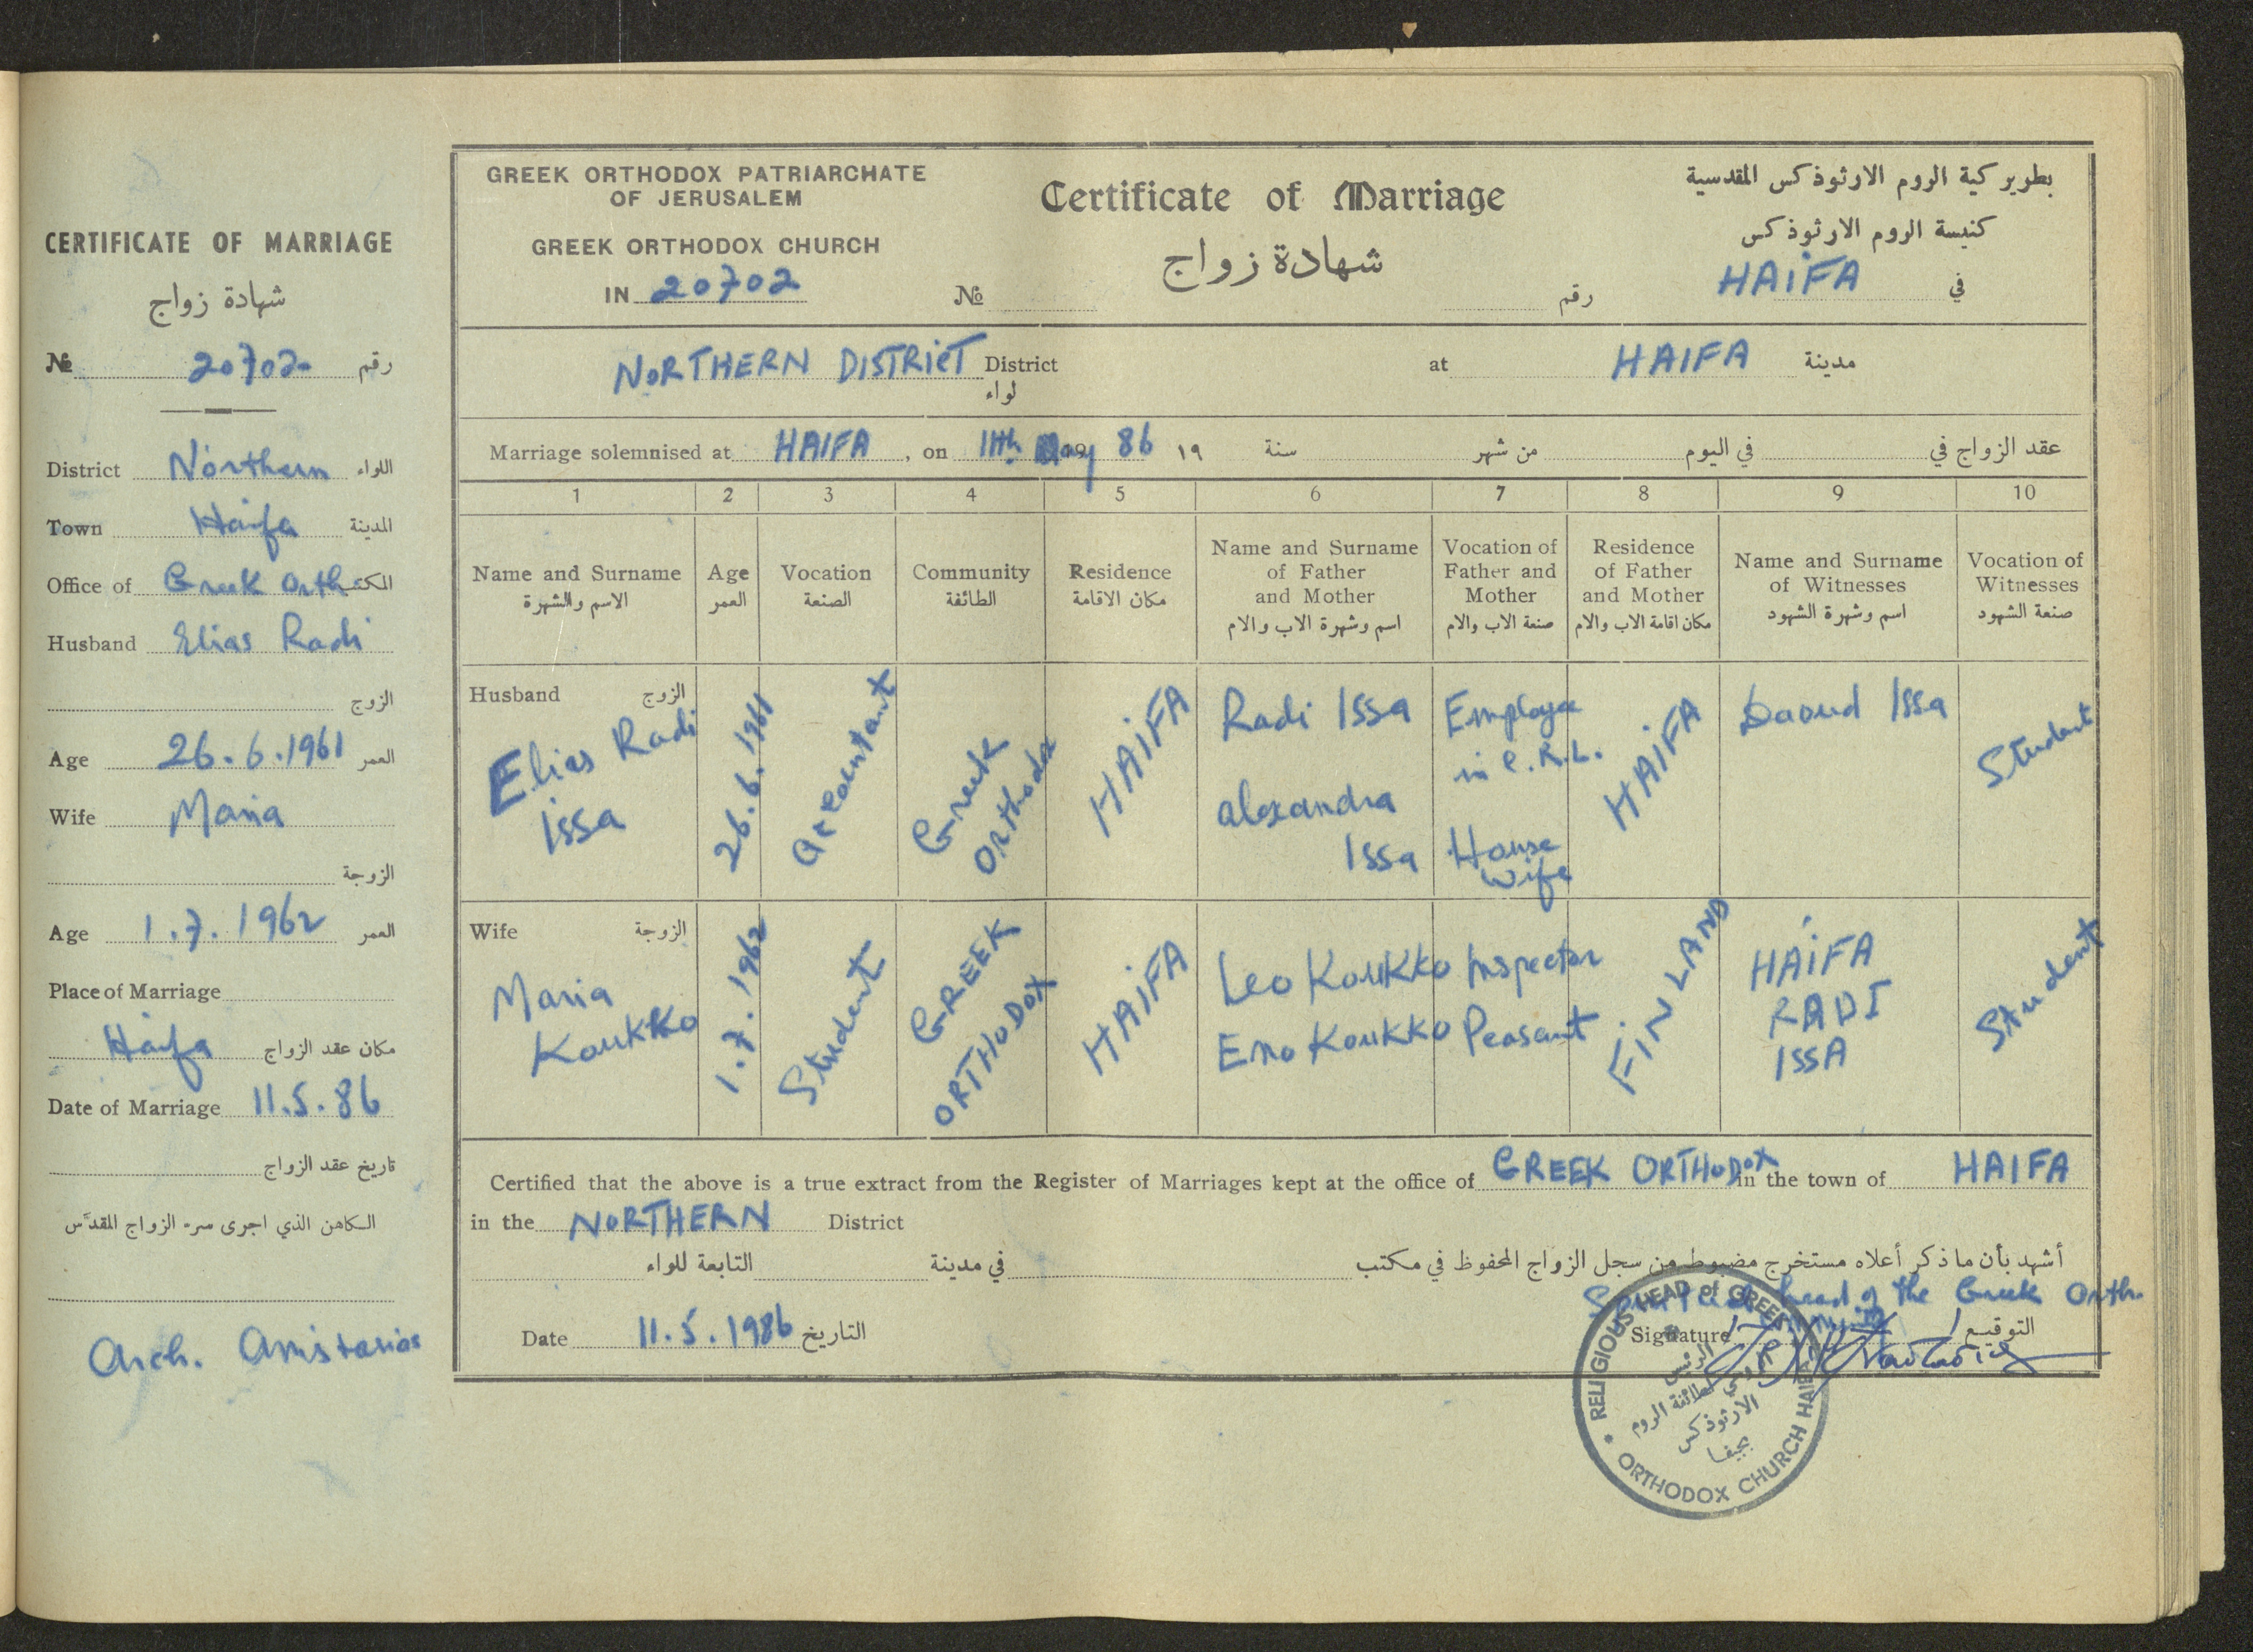 CERTIFICATE OF MARRIAGE
شهادة زواج
№ 20702 رقم
District Northern اللواء
Town Haifa المدينة
Office of Greek Orth المكتب
Husband Elias Radi
الزوج
Age 26.6.1961 العمر
Wife Maria
الزوجة
Age 1.7.1962 العمر
Place of Marriage
Haifa مكان عقد الزواج
Date of Marriage 11.5.86
تاريخ عقد الزواج
الكاهن الذي اجرى سر الزواج المقدّس
Arch.
GREEK ORTHODOX PATRIARCHATE
OF JERUSALEM
GREEK ORTHODOX CHURCH
IN 20702
Certificate of Marriage
شهادة زواج
№ رقم
بطريركية الروم الارثوذكس المقدسية
كنيسة الروم الارثوذكس
في HAIFA
NORTHERN DISTRICT District
لواء
at HAIFA مدينة
Marriage solemnised at HAIFA, on 11th May 86 ١٩ سنة من شهر في اليوم عقد الزواج في
1 2 3 4 5 6 7 8 9 10
Name and Surname
الاسم والشهرة
Age
العمر
Vocation
الصنعة
Community
الطائفة
Residence
مكان الاقامة
Name and Surname
of Father
and Mother
اسم وشهرة الاب والام
Vocation of
Father and
Mother
صنعة الاب والام
Residence
of Father
and Mother
مكان اقامة الاب والام
Name and Surname
of Witnesses
اسم وشهرة الشهود
Vocation of
Witnesses
صنعة الشهود
Husband الزوج
Elias Radi
Issa
26.6.1961
Accountant
Greek
Orthodox
HAIFA
Radi Issa
Alexandra
Issa
Employee
in C.R.L.
House
wife
HAIFA
Daoud Issa
Student
Wife الزوجة
Maria
Koukko
1.7.1962
Student
GREEK
ORTHODOX
HAIFA
Leo Koukko
Eno Koukko
Inspector
Peasant
FINLAND
HAIFA
RADI
ISSA
Student
Certified that the above is a true extract from the Register of Marriages kept at the office of GREEK ORTHODOX in the town of HAIFA
in the NORTHERN District
أشهد بأن ما ذكر أعلاه مستخرج مضبوط من سجل الزواج المحفوظ في مكتب في مدينة التابعة للواء
head of the Greek Orth.
Date 11.5.1986 التاريخ
Signature التوقيع
RELIGIOUS HEAD of GREEK
ORTHODOX CHURCH HAIFA
الرئيس
الروحي لطائفة الروم
الارثوذكس
بحيفا